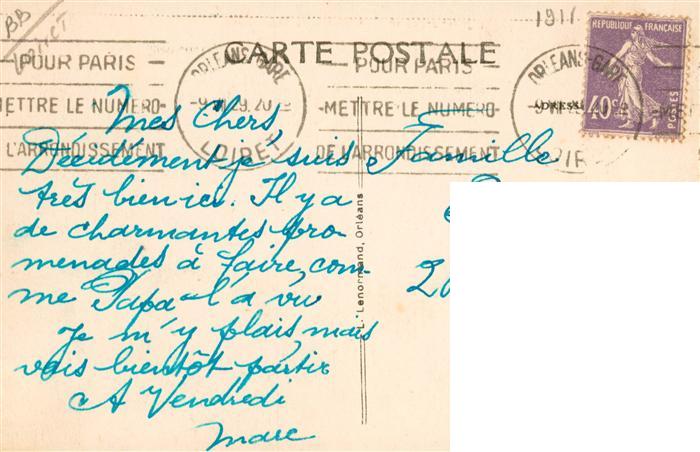 BB
1911
CARTE POSTALE
RÉPUBLIQUE FRANÇAISE
POSTES
40c
POUR PARIS
METTRE LE NUMERO
L'ARRONDISSEMENT
ORLEANS-GARE
LOIRET
POUR PARIS
METTRE LE NUMERO
DE L'ARRONDISSEMENT
ORLEANS-GARE
ADRESSE
Mes Chers
Décidement je suis
très bien ici. Il y a
de charmantes pro-
menades à faire, com-
me Papa l'a vu
Je m'y plais, mais
vais bientôt partir
A Vendredi
Marc
L. Lenormand, Orléans
Famille